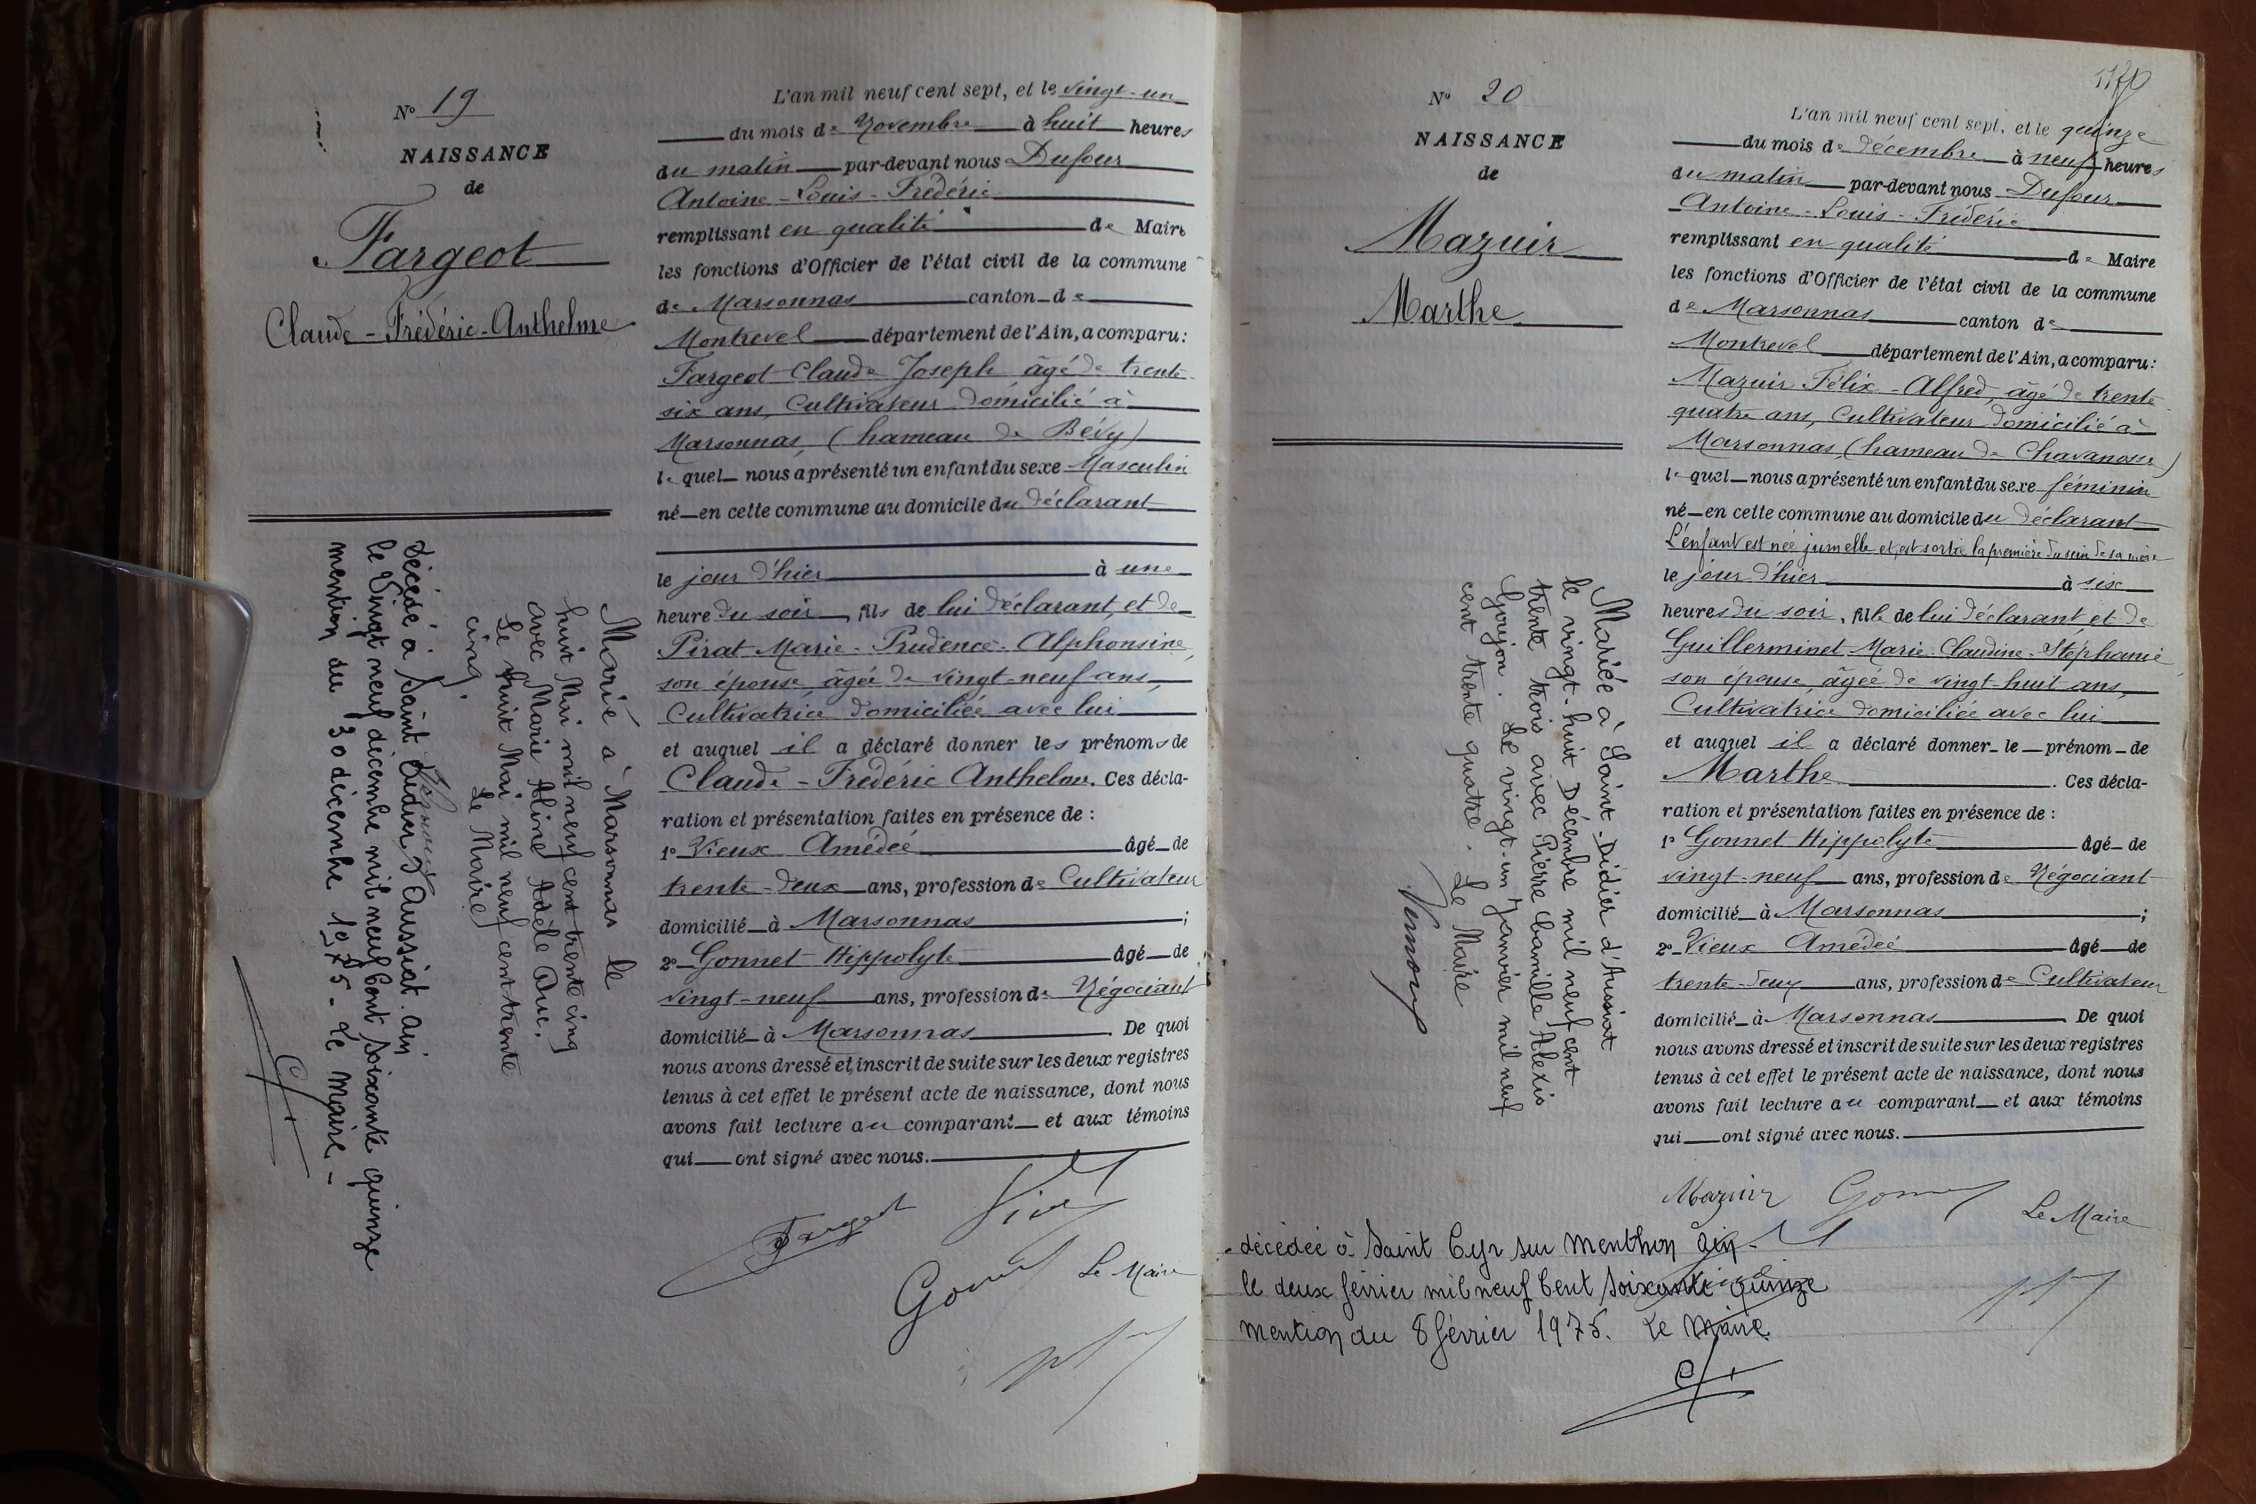 N° 19
NAISSANCE
de
Fargeot
Claude - Frédéric - Anthelme
L'an mil neuf cent sept, et le vingt-un
du mois de Novembre à huit heures
du matin par-devant nous Dufour
Antoine - Louis - Frédéric
remplissant en qualité de Maire
les fonctions d'Officier de l'état civil de la commune
de Marsonnas canton de
Montrevel département de l'Ain, a comparu :
Fargeot Claude Joseph âgé de trente
six ans, Cultivateur domicilié à
Marsonnas, (hameau de Bévy)
lequel nous a présenté un enfant du sexe Masculin
né en cette commune au domicile du déclarant
le jour d'hier à une
heure du soir, fils de lui déclarant, et de
Pirat Marie - Prudence - Alphonsine,
son épouse, âgée de vingt-neuf ans,
Cultivatrice domiciliée avec lui
et auquel il a déclaré donner les prénoms de
Claude - Frédéric Anthelme. Ces décla-
ration et présentation faites en présence de :
1° Vieux Amédée âgé de
trente-deux ans, profession de Cultivateur
domicilié à Marsonnas ;
2° Gonnet Hippolyte âgé de
vingt-neuf ans, profession de Négociant
domicilié à Marsonnas. De quoi
nous avons dressé et inscrit de suite sur les deux registres
tenus à cet effet le présent acte de naissance, dont nous
avons fait lecture au comparant et aux témoins
qui ont signé avec nous.
Fargeot
Le Maire
Marié à Marsonnas le
huit Mai mil neuf cent trente cinq
avec Marie Aline Adèle Duc.
Le huit Mai mil neuf cent trente
cinq.
Le Maire
décédé à Saint Didier d'Aussiat. ain
le Vingt neuf décembre mil neuf Cent Soixante quinze
mention du 30 décembre 1975 - Le Maire -
N° 20
NAISSANCE
de
Mazuir
Marthe
L'an mil neuf cent sept, et le quinze
du mois de décembre à neuf heures
du matin par-devant nous Dufour
Antoine - Louis - Frédéric
remplissant en qualité de Maire
les fonctions d'Officier de l'état civil de la commune
de Marsonnas canton de
Montrevel département de l'Ain, a comparu :
Mazuir Félix - Alfred, âgé de trente
quatre ans, Cultivateur domicilié à
Marsonnas, (hameau de Chavanosse)
lequel nous a présenté un enfant du sexe féminin
né en cette commune au domicile du déclarant
L'enfant est née jumelle et est sortie la première du sein de sa mère
le jour d'hier à six
heures du soir, fille de lui déclarant et de
Guillerminet Marie - Claudine - Stéphanie
son épouse, âgée de vingt-huit ans,
Cultivatrice domiciliée avec lui
et auquel il a déclaré donner le prénom de
Marthe. Ces décla-
ration et présentation faites en présence de :
1° Gonnet Hippolyte âgé de
vingt-neuf ans, profession de Négociant
domicilié à Marsonnas ;
2° Vieux Amédée âgé de
trente-deux ans, profession de Cultivateur
domicilié à Marsonnas. De quoi
nous avons dressé et inscrit de suite sur les deux registres
tenus à cet effet le présent acte de naissance, dont nous
avons fait lecture au comparant et aux témoins
qui ont signé avec nous.
Mazuir
Le Maire
Mariée à Saint-Didier d'Aussiat
le vingt-huit Décembre mil neuf cent
trente trois avec Pierre Camille Alexis
Goujon. Le vingt-un Janvier mil neuf
cent trente quatre. Le Maire
décédée à Saint Cyr sur Menthon ain -
le deux février mil neuf Cent Soixante quinze
mention du 8 février 1975. Le Maire.